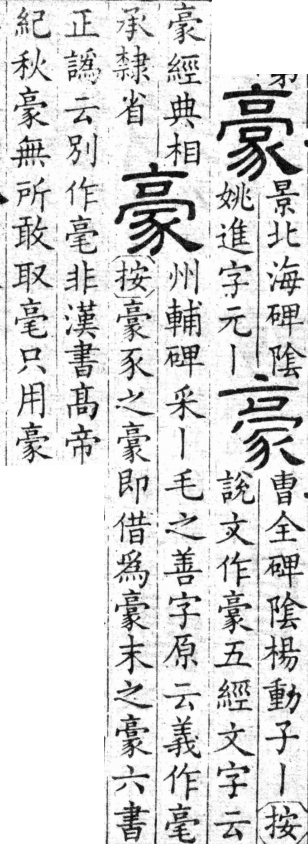 豪
景北海碑陰
姚進字元丨
豪
曹全碑陰楊動子丨按
說文作豪五經文字云
豪經典相
承隸省
豪
州輔碑采丨毛之善字原云義作毫
按豪豕之豪即借爲豪末之豪六書
正譌云別作毫非漢書髙帝
紀秋豪無所敢取毫只用豪